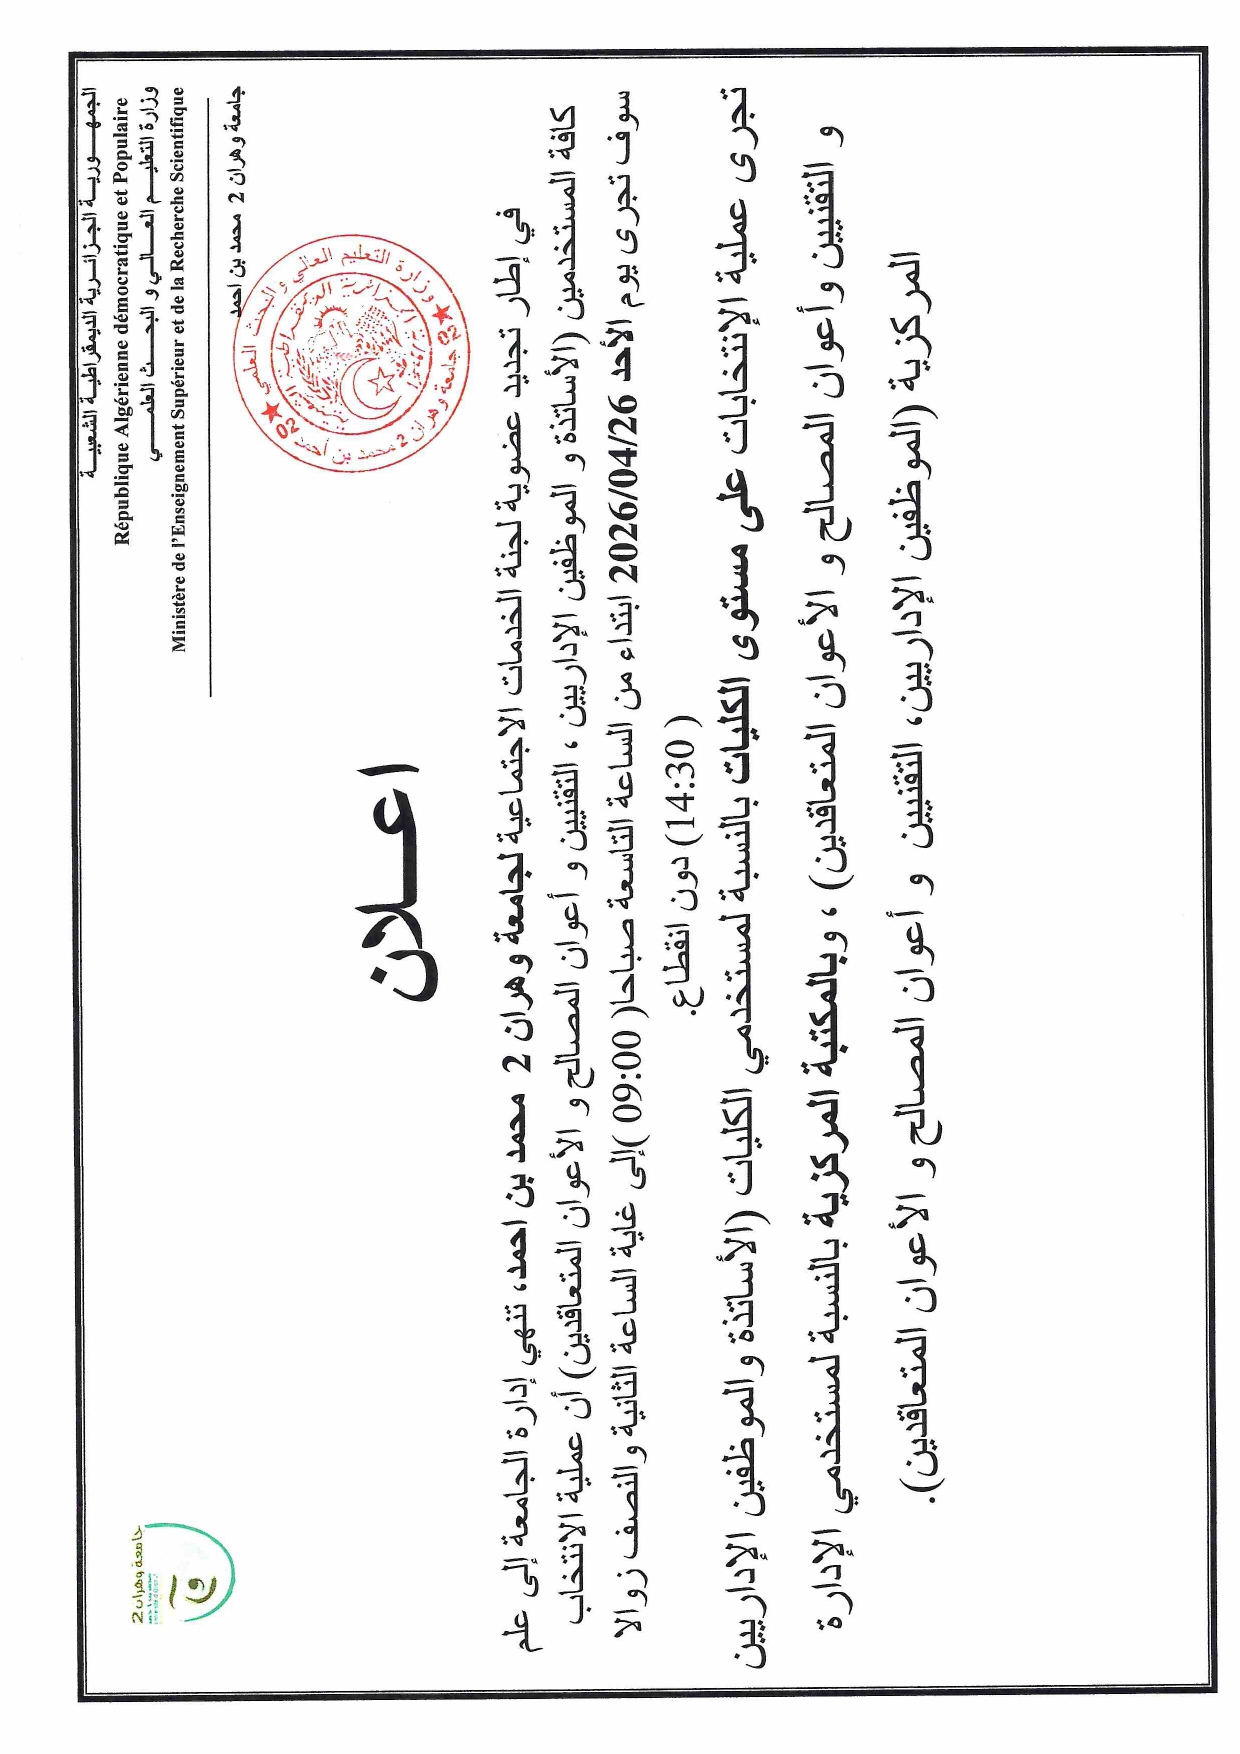 الجمهـــوريـة الجـزائـرية الديمقراطيـة الشعبيـــة
République Algérienne démocratique et Populaire
وزارة التعليــم العـــالـي و البحـــث العلمـــي
Ministère de l'Enseignement Supérieur et de la Recherche Scientifique
جامعة وهران 2 محمد بن احمد
جامعة وهران 2
وزارة التعليم العالي و البحث العلمي
جامعة وهران 2 محمد بن أحمد
02
02
اعـــلان
في إطار تجديد عضوية لجنة الخدمات الاجتماعية لجامعة وهران 2 محمد بن احمد، تنهي إدارة الجامعة إلى علم
كافة المستخدمين (الأساتذة و الموظفين الإداريين ، التقنيين و أعوان المصالح و الأعوان المتعاقدين) أن عملية الانتخاب
سوف تجرى يوم الأحد 2026/04/26 ابتداء من الساعة التاسعة صباحا( 09:00 )إلى غاية الساعة الثانية والنصف زوالا
( 14:30) دون انقطاع.
تجرى عملية الإنتخابات على مستوى الكليات بالنسبة لمستخدمي الكليات (الأساتذة والموظفين الإداريين
و التقنيين وأعوان المصالح و الأعوان المتعاقدين) ، وبالمكتبة المركزية بالنسبة لمستخدمي الإدارة
المركزية (الموظفين الإداريين، التقنيين و أعوان المصالح و الأعوان المتعاقدين).